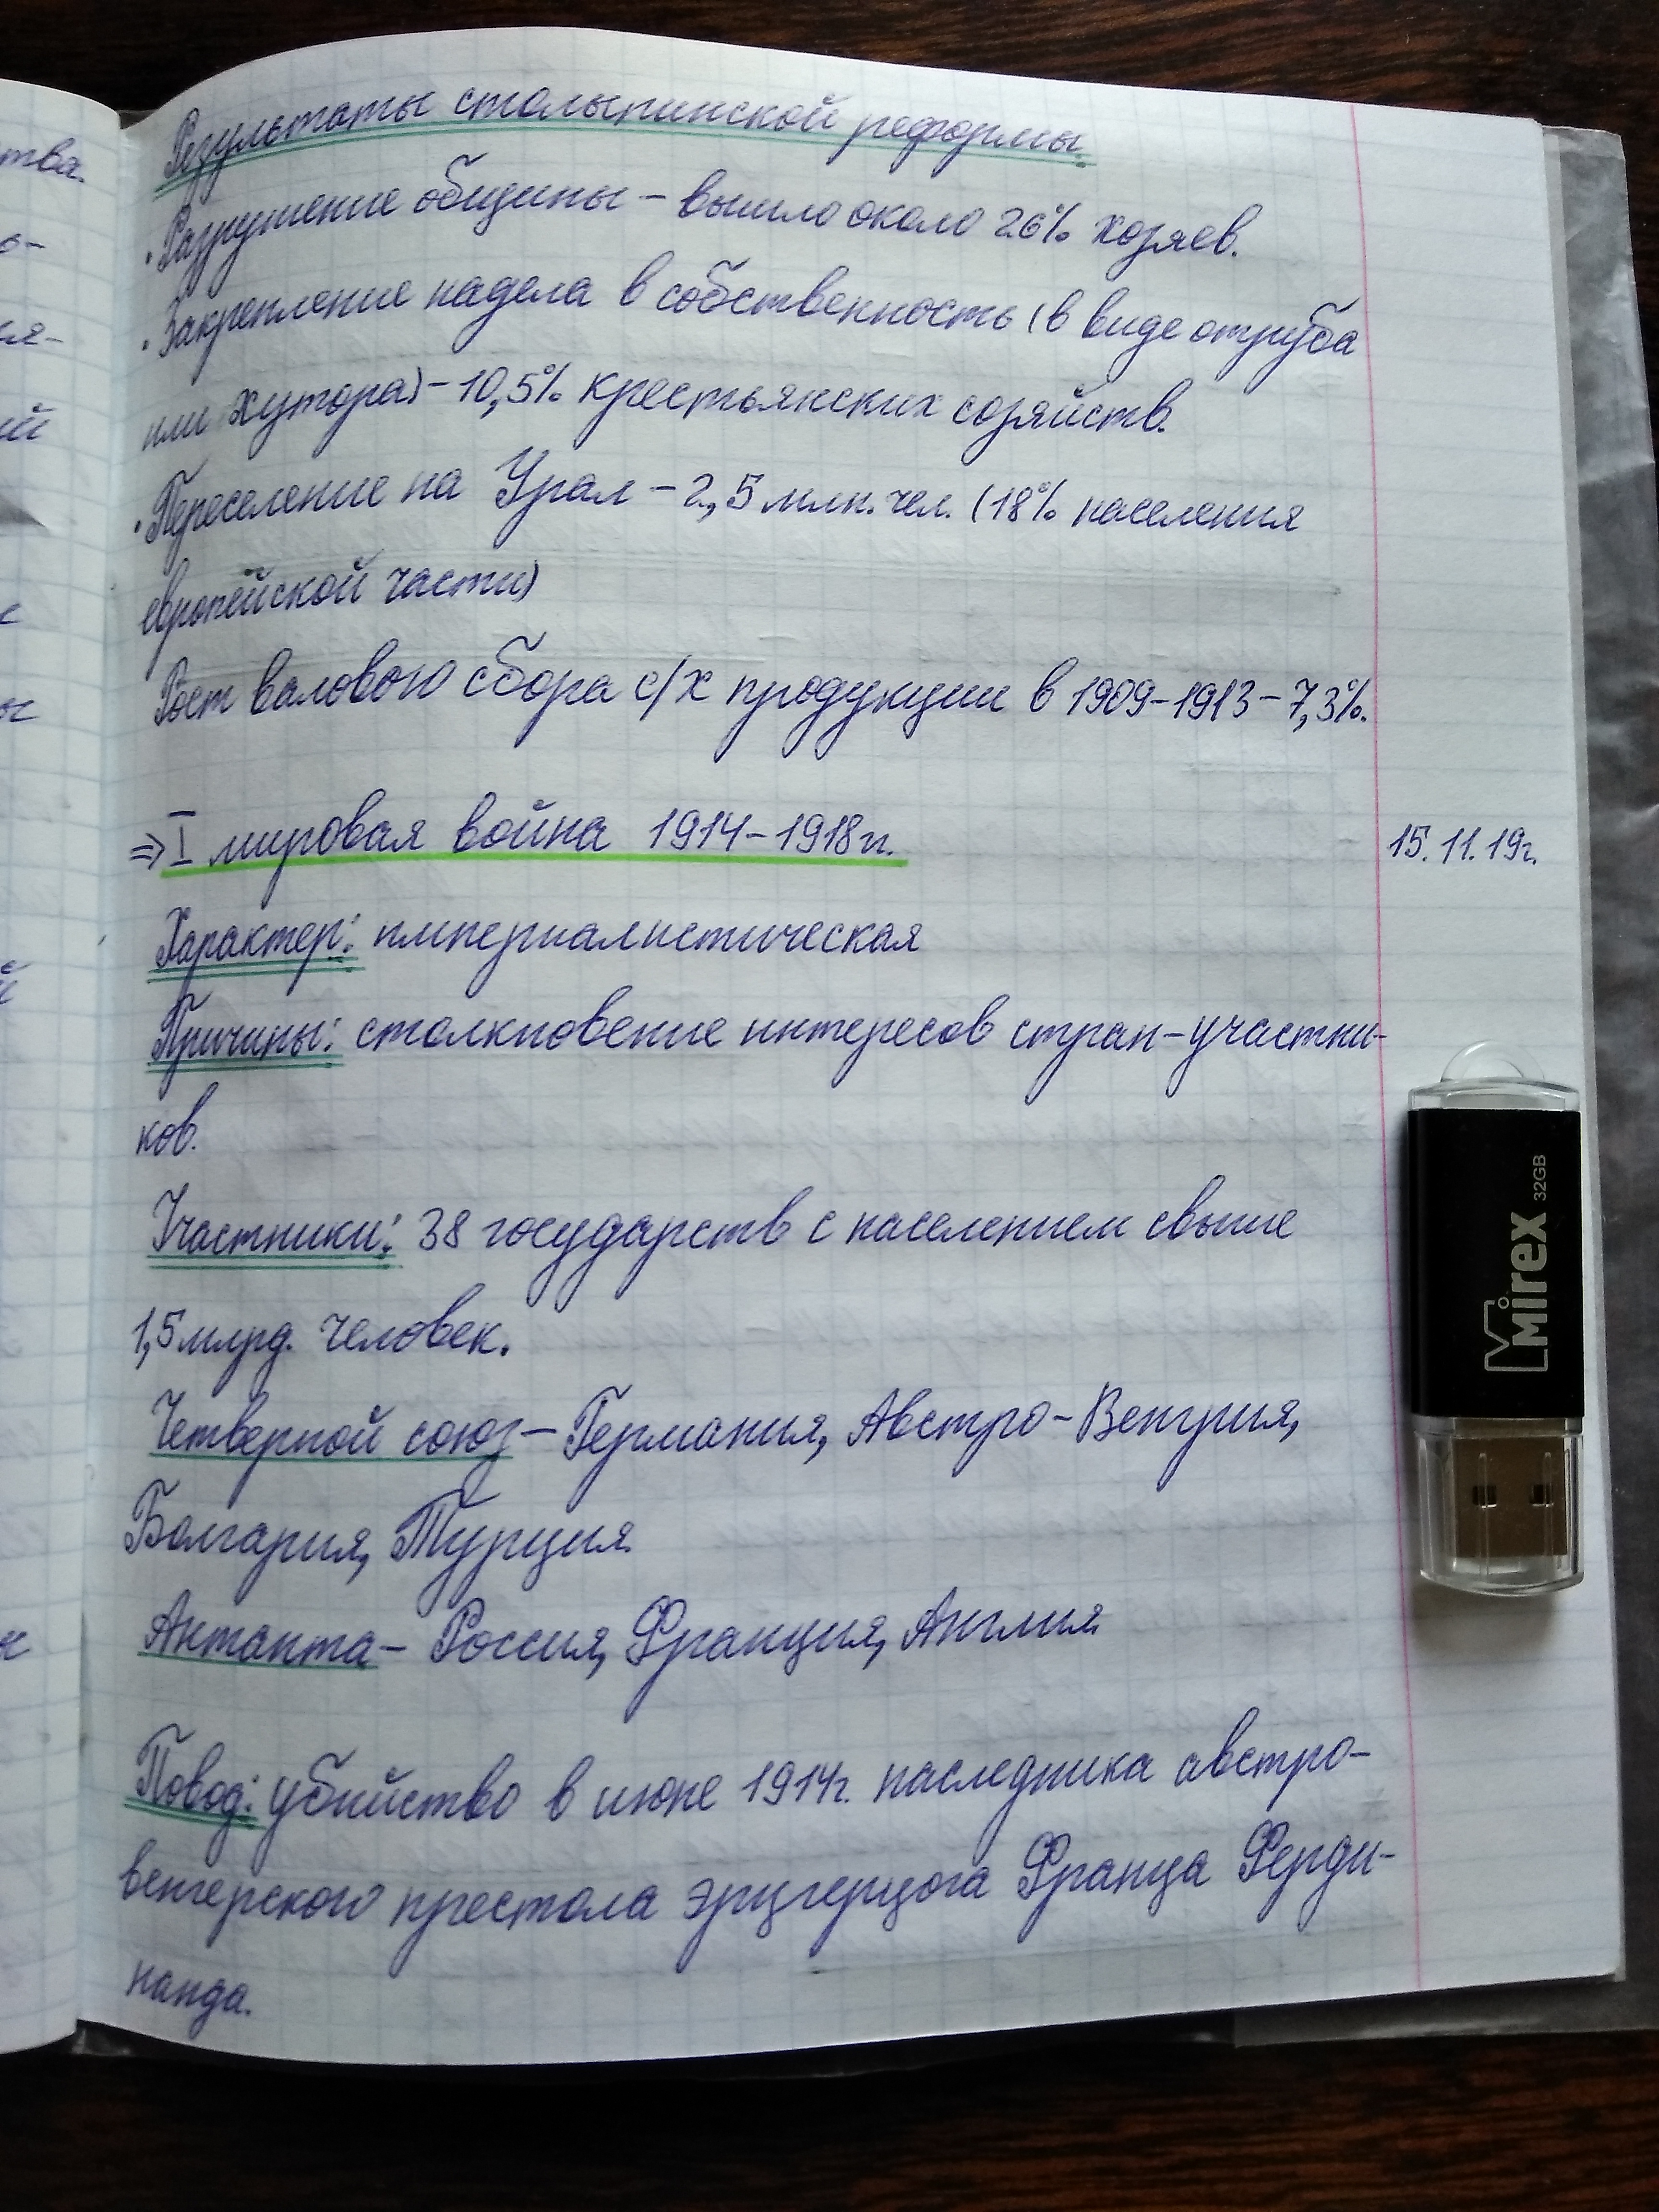 Результаты столыпинской реформы
• Разрушение общины – вышло около 26% хозяев.
• Закрепление надела в собственность (в виде отруба
или хутора) – 10,5% крестьянских созяйств.
• Переселение на Урал – 2,5 млн. чел. (18% населения
европейской части)
Рост валового сбора с/х продукции в 1909–1913 – 7,3%.
⇒ I мировая война 1914–1918гг.
15.11.19г.
Характер: империалистическая
Причины: столкновение интересов стран-участни-
ков.
Участники: 38 государств с населением свыше
1,5 млрд. человек.
Четверной союз – Германия, Австро-Венгрия,
Болгария, Турция.
Антанта – Россия, Франция, Англия
Повод: убийство в июне 1914г. наследника австро-
венгерского престола эрцгерцога Франца Ферди-
нанда.
Mirex 32GB
тва.
о-
ия-
ий